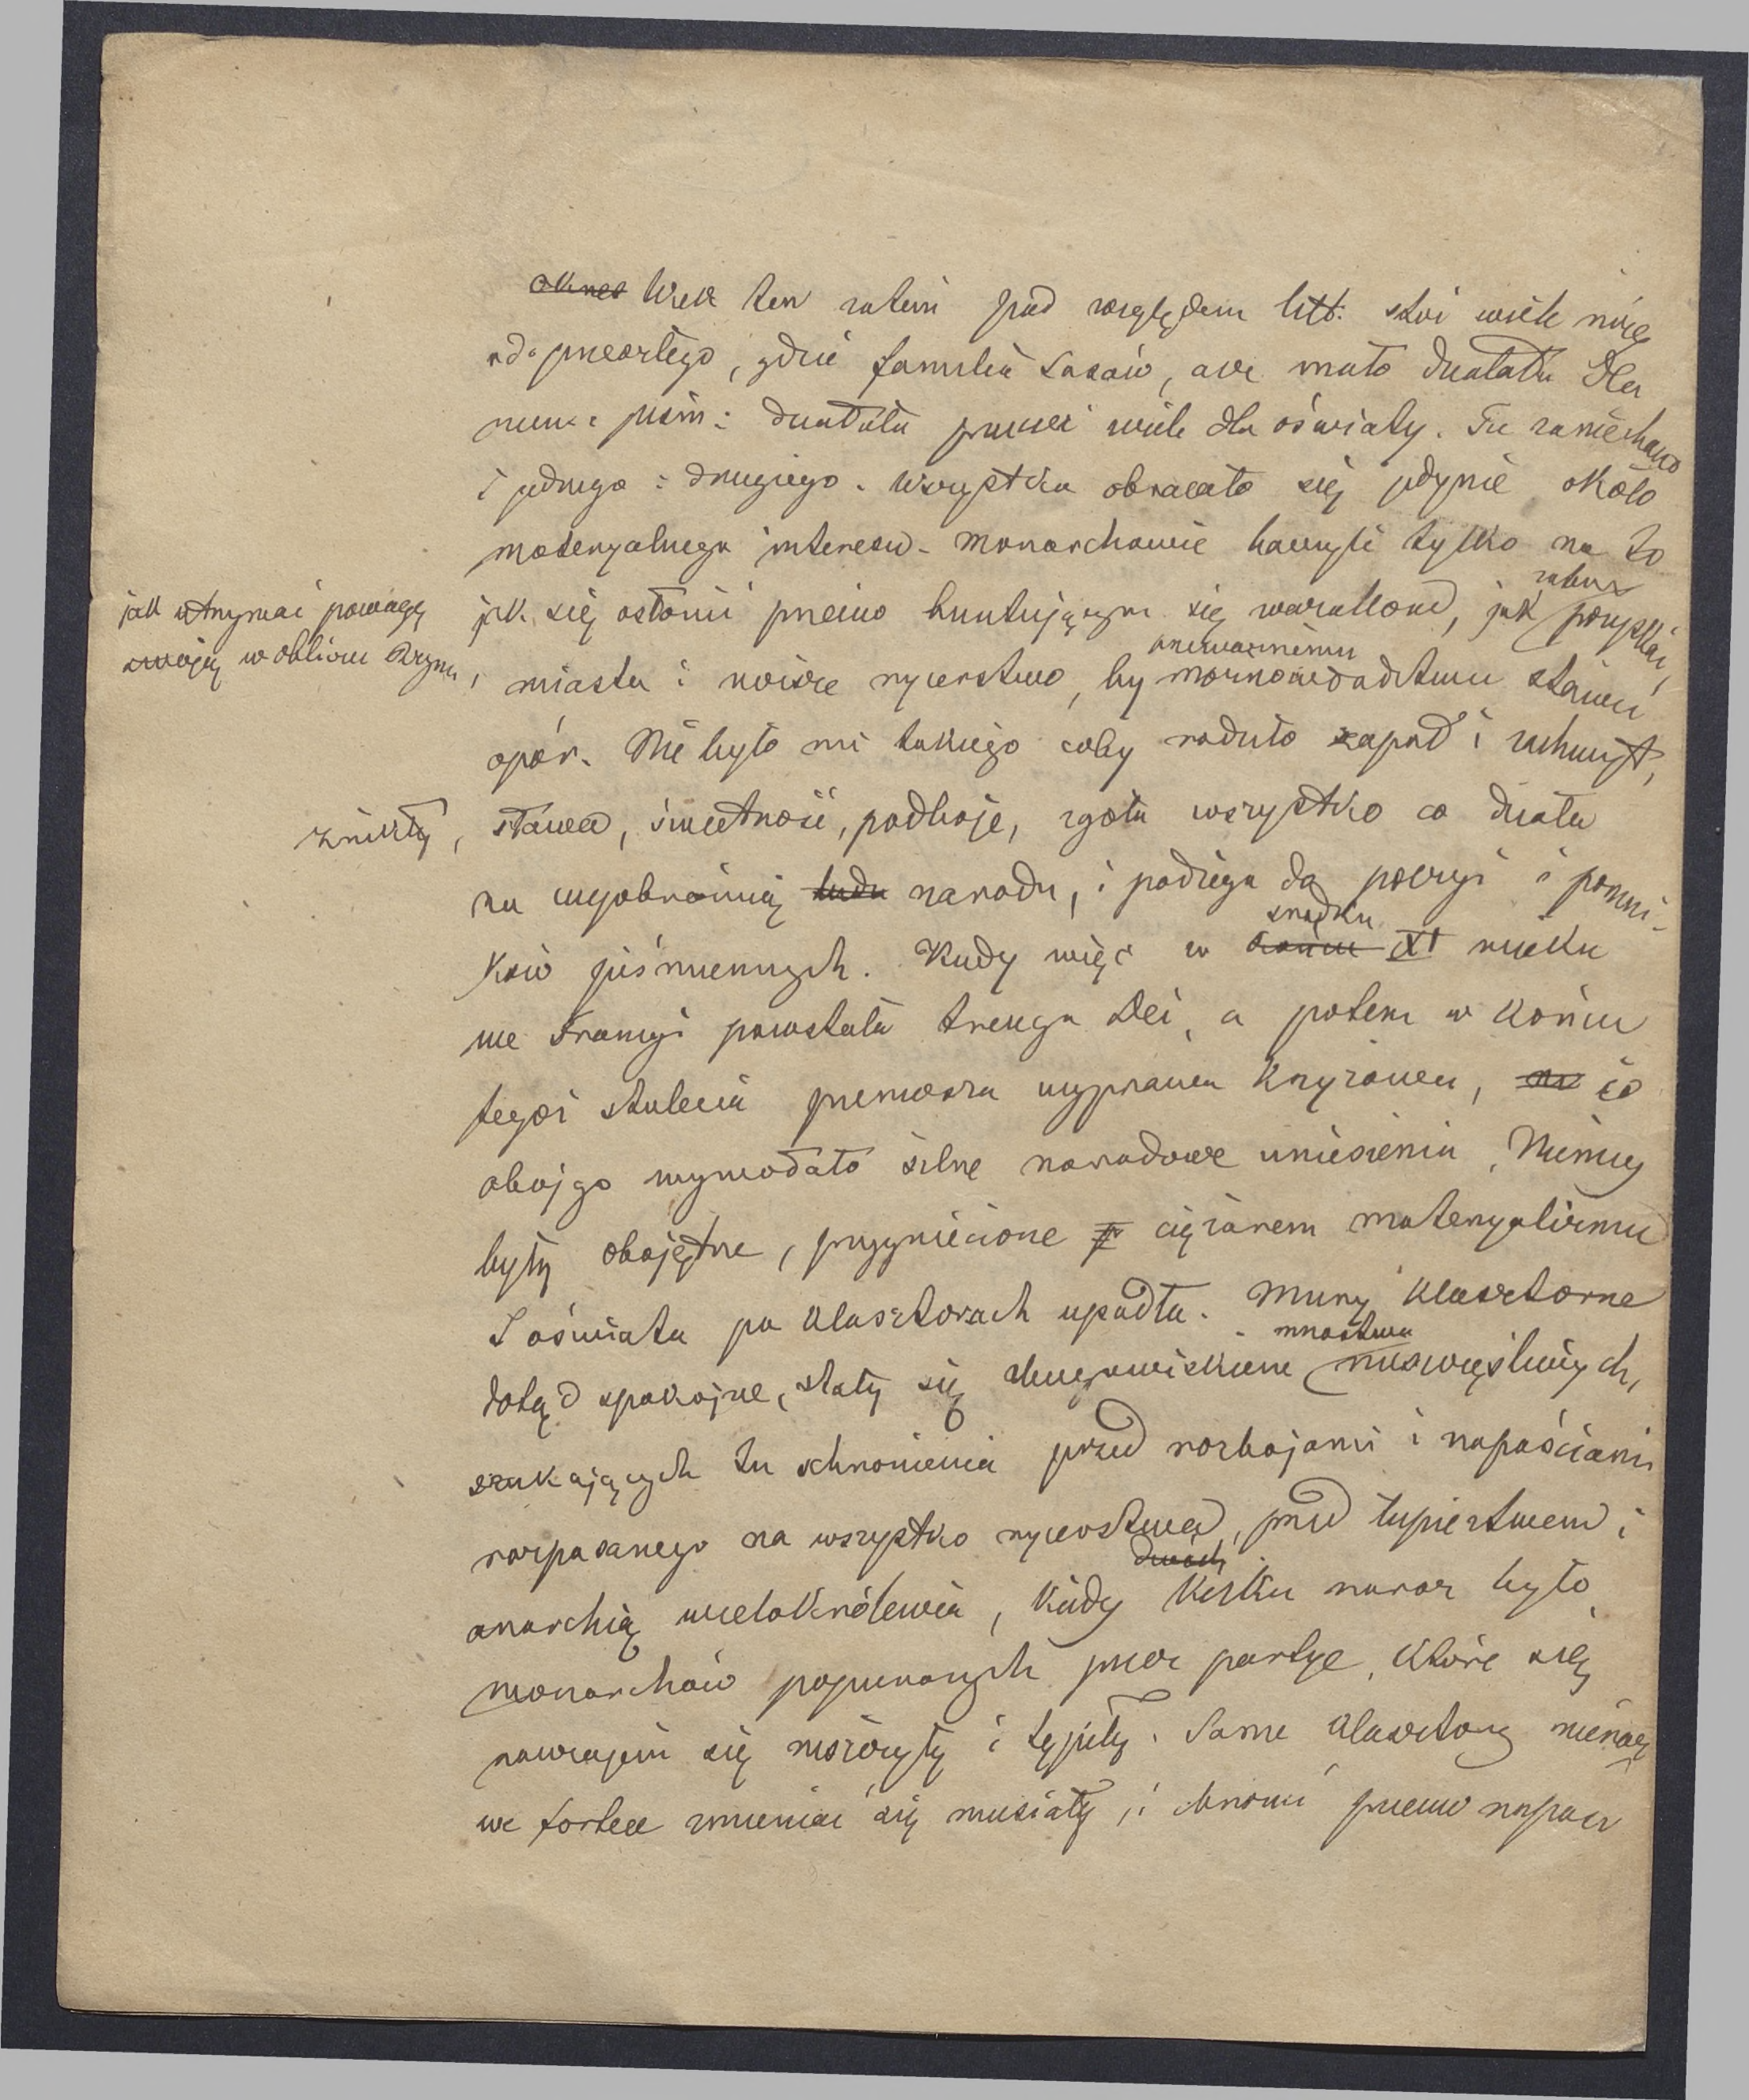 okres Wiek ten zatem pod względem litt: stoi wiele niżej
od przeszłego, gdzie familia Sasów, acz mało działała dla
działała przecież wiele dla oświaty. Tu zaniechano
i jednego i drugiego. Wszystko obracało się jedynie około
materyalnego interesu. Monarchowie baczyli tylko na to
jak się osłonić przeciw buntującym się wazallom, jak pozyskać
jak utrzymać powagę
swoję w obliczu Rzymu,
miasta i niższe rycerstwo, by możnowładztwu stawić
opór. Nie było nic takiego coby rodziło zapał i zachwyt,
znikły, sława, świetność, podboje, zgoła wszystko co działa
na wyobraźnią ludu narodu, i podżega do poezyi i pomni-
środku
ków piśmiennych. Kiedy więc w końcu XI wieku
we Francyi powstała treuga Dei, a potem w końcu
tegoż stulecia pierwsza wyprawa krzyżowa, co
obojgo wywołało silne narodowe uniesienia, Niemcy
były obojętne, przygniecione ciężarem materyalizmu
I oświata po klasztorach upadła. Mury klasztorne
mnóstwa
dotąd spokojne, stały się nieszczęśliwych,
szukających tu schronienia przed rozbojami i napaściami
rozpasanego na wszystko rycerstwa, przed łupiestwem i
dwóch
anarchią wielokrólewia, kiedy kilku naraz było
monarchów popieranych przez partye, które się
nawzajem się niszczyły i tępiły. Same klasztory nieraz
we fortece zmieniać się musiały, i bronić przeciw napaści